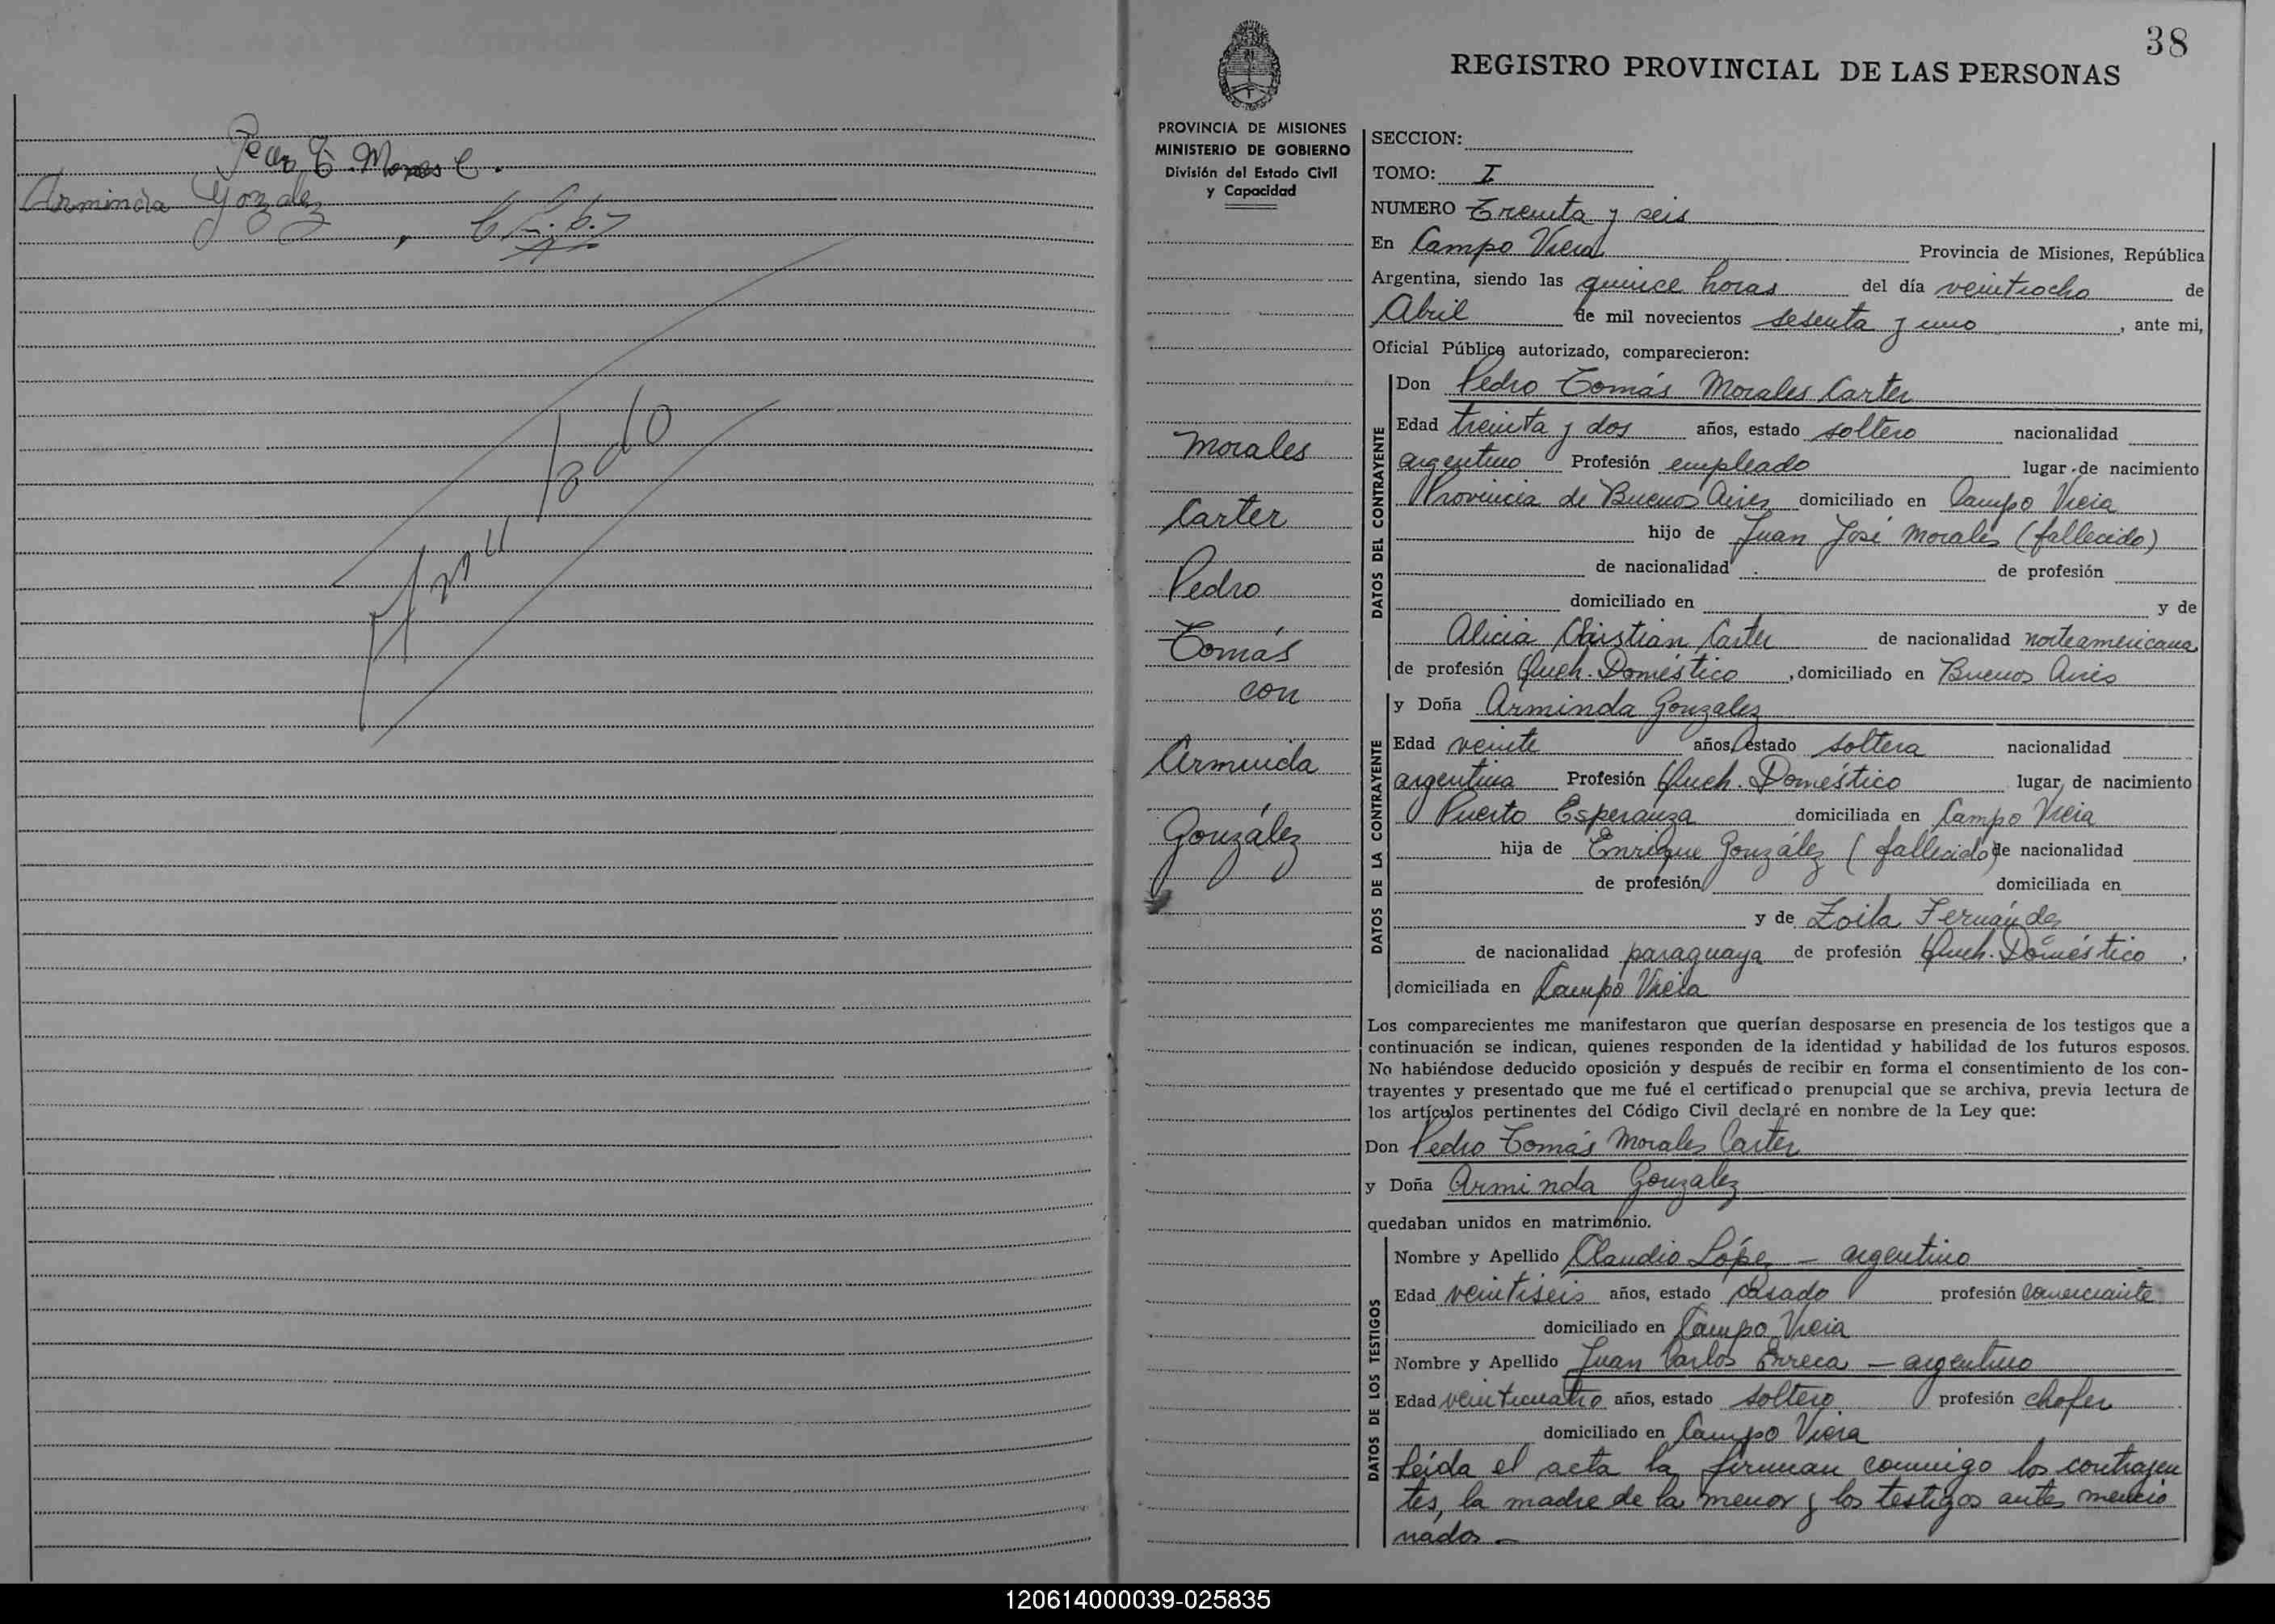 Pedro T. Morales C.
Arminda Gonzalez
Anulado
38
REGISTRO PROVINCIAL DE LAS PERSONAS
PROVINCIA DE MISIONES
MINISTERIO DE GOBIERNO
División del Estado Civil
y Capacidad
Morales
Carter
Pedro
Tomás
con
Arminda
González
SECCION:
TOMO: I
NUMERO Treinta y seis
En Campo Viera Provincia de Misiones, República
Argentina, siendo las quince horas del día veintiocho de
Abril de mil novecientos sesenta y uno, ante mi,
Oficial Público autorizado, comparecieron:
DATOS DEL CONTRAYENTE
Don Pedro Tomás Morales Carter
Edad treinta y dos años, estado soltero nacionalidad
argentino Profesión empleado lugar de nacimiento
Provincia de Buenos Aires domiciliado en Campo Viera
hijo de Juan José Morales (fallecido)
de nacionalidad de profesión
domiciliado en y de
Alicia Christian Carter de nacionalidad norteamericana
de profesión Queh. Doméstico, domiciliado en Buenos Aires
DATOS DE LA CONTRAYENTE
y Doña Arminda Gonzalez
Edad veinte años, estado soltera nacionalidad
argentina Profesión Queh. Doméstico lugar de nacimiento
Puerto Esperanza domiciliada en Campo Viera
hija de Enrique González (fallecido) de nacionalidad
de profesión domiciliada en
y de Zoila Fernández
de nacionalidad paraguaya de profesión Queh. Doméstico,
domiciliada en Campo Viera
Los comparecientes me manifestaron que querían desposarse en presencia de los testigos que a
continuación se indican, quienes responden de la identidad y habilidad de los futuros esposos.
No habiéndose deducido oposición y después de recibir en forma el consentimiento de los con-
trayentes y presentado que me fué el certificado prenupcial que se archiva, previa lectura de
los artículos pertinentes del Código Civil declaré en nombre de la Ley que:
Don Pedro Tomás Morales Carter
y Doña Arminda Gonzalez
quedaban unidos en matrimonio.
DATOS DE LOS TESTIGOS
Nombre y Apellido Claudio López - argentino
Edad veintiseis años, estado casado profesión comerciante
domiciliado en Campo Viera
Nombre y Apellido Juan Carlos Erreca - argentino
Edad veinticuatro años, estado soltero profesión chofer
domiciliado en Campo Viera
Leída el acta la firman conmigo los contrayen
tes, la madre de la menor y los testigos antes mencio
nados -
120614000039-025835